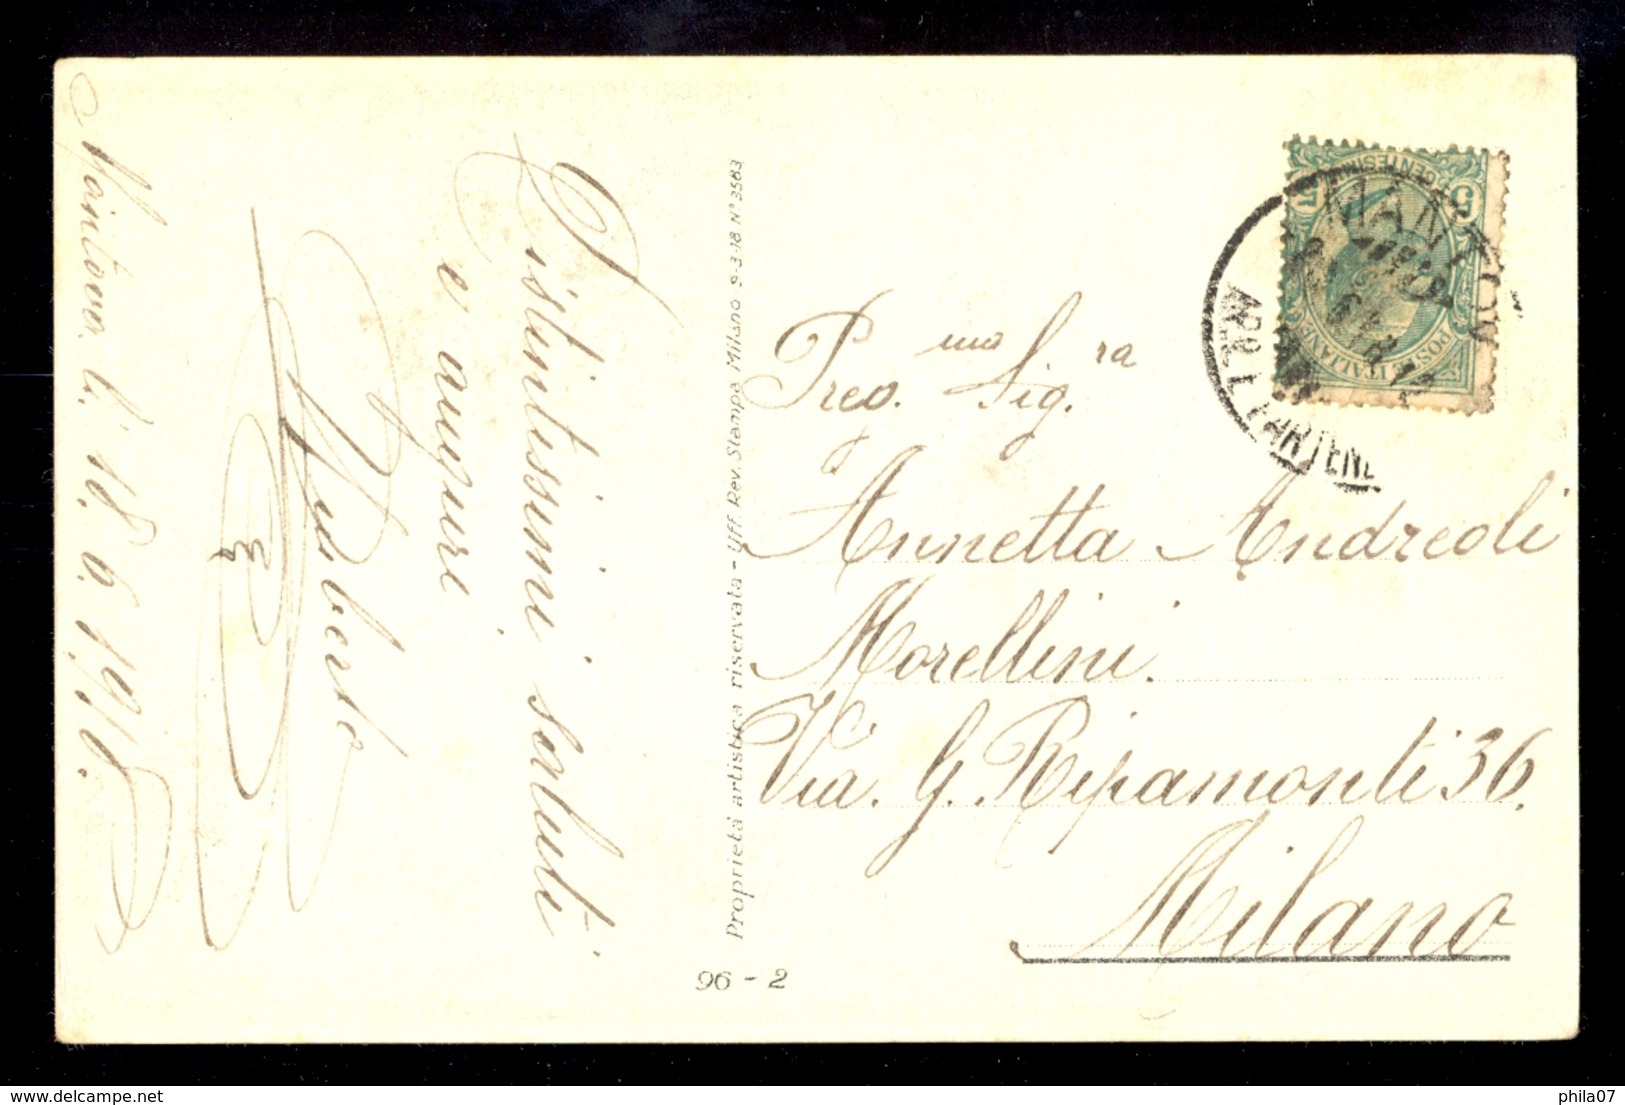 Mantova li 18.6.1918.
Distintissimi saluti
e auguri
Umberto
Proprietà artistica riservata - Uff. Rev. Stampa Milano 9-3-18 N° 3583
96 - 2
Preg.mo Sig.ra
Annetta Andreoli
Morellini.
Via. G. Ripamonti 36.
Milano
5 CENTESIMI 5
POSTE ITALIANE
MANTOVA
ARRIVI PARTENZ
phila07